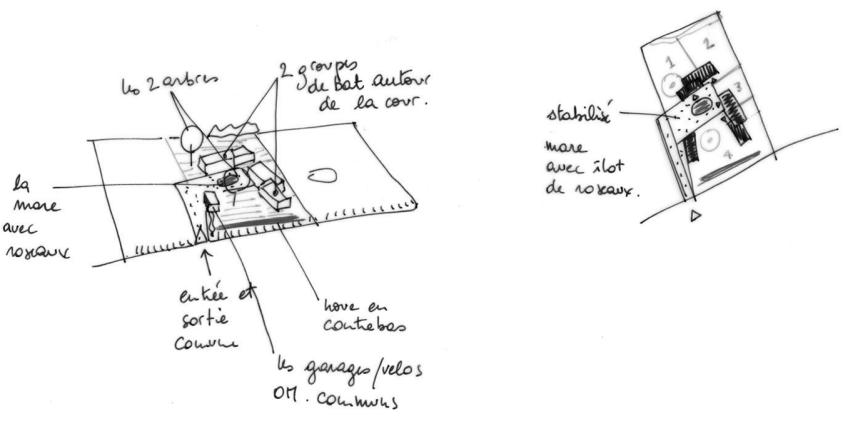 les 2 arbres
2 groupes
de bat autour
de la cour.
la
mare
avec
roseaux
entrée et
sortie
commune
noue en
contrebas
les garages/velos
OM. communs
stabilisé
mare
avec îlot
de roseaux.
1
2
3
4